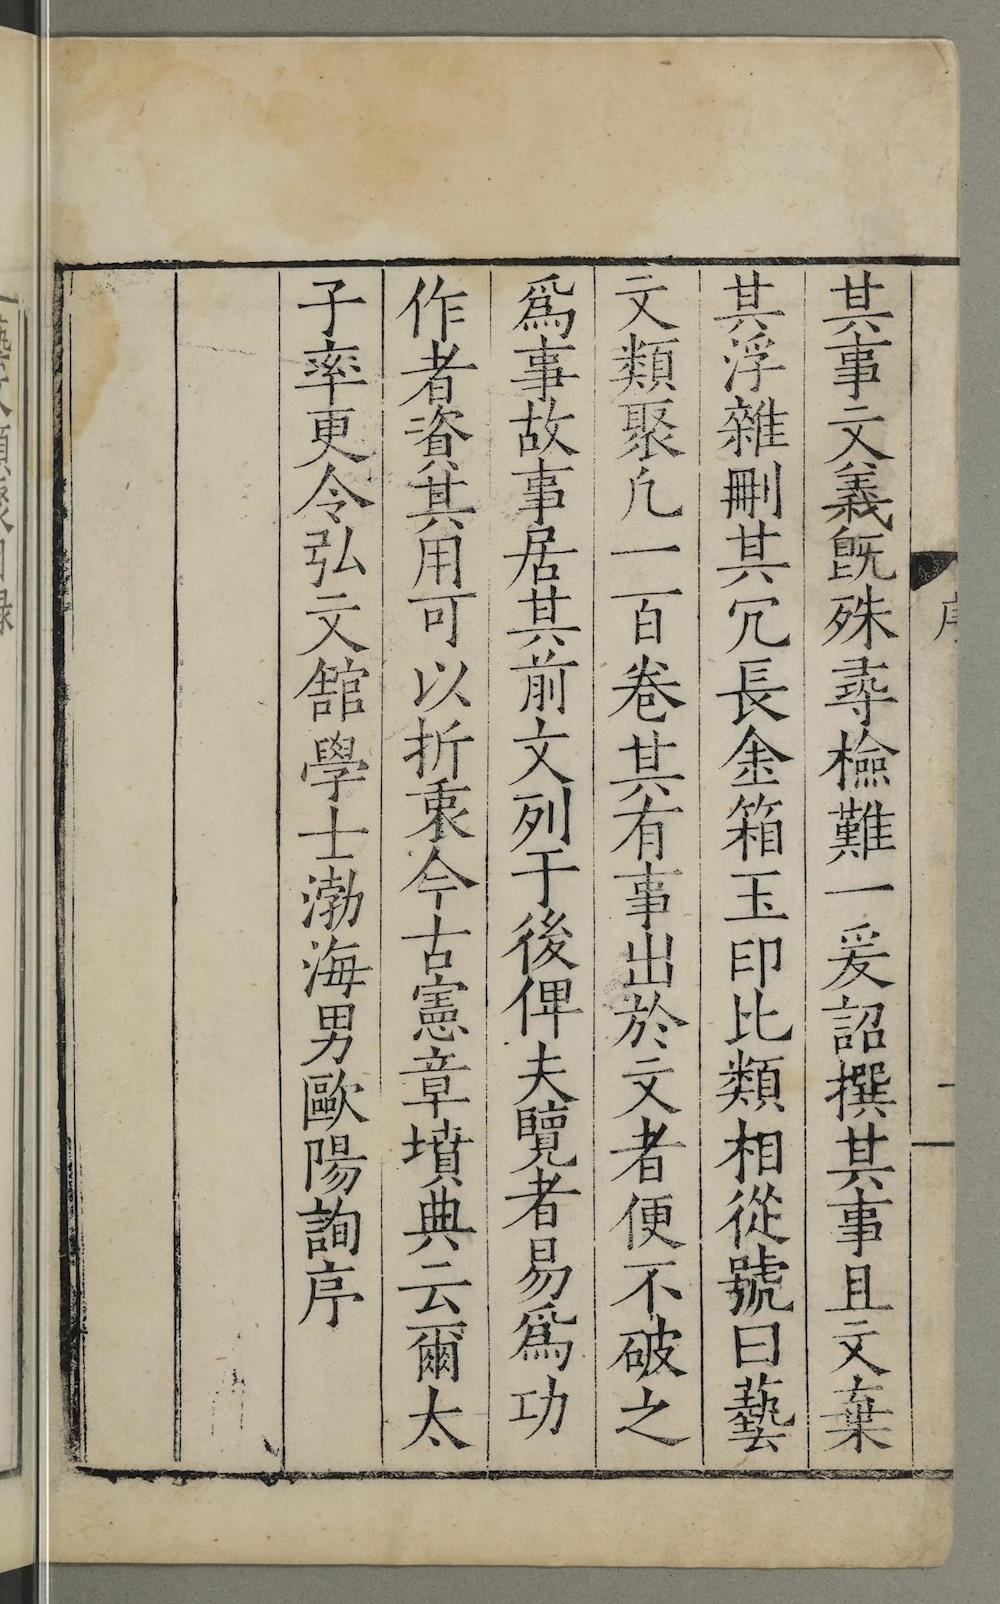 其事文義旣殊尋檢難一爰詔撰其事且文棄
其浮雜刪其冗長金箱玉印比類相從號曰藝
文類聚凢一百卷其有事出於文者便不破之
爲事故事居其前文列于後俾夫覽者易爲功
作者資其用可以折衷今古憲章墳典云爾太
子率更令弘文舘學士渤海男歐陽詢序
序
一
藝文類聚目錄